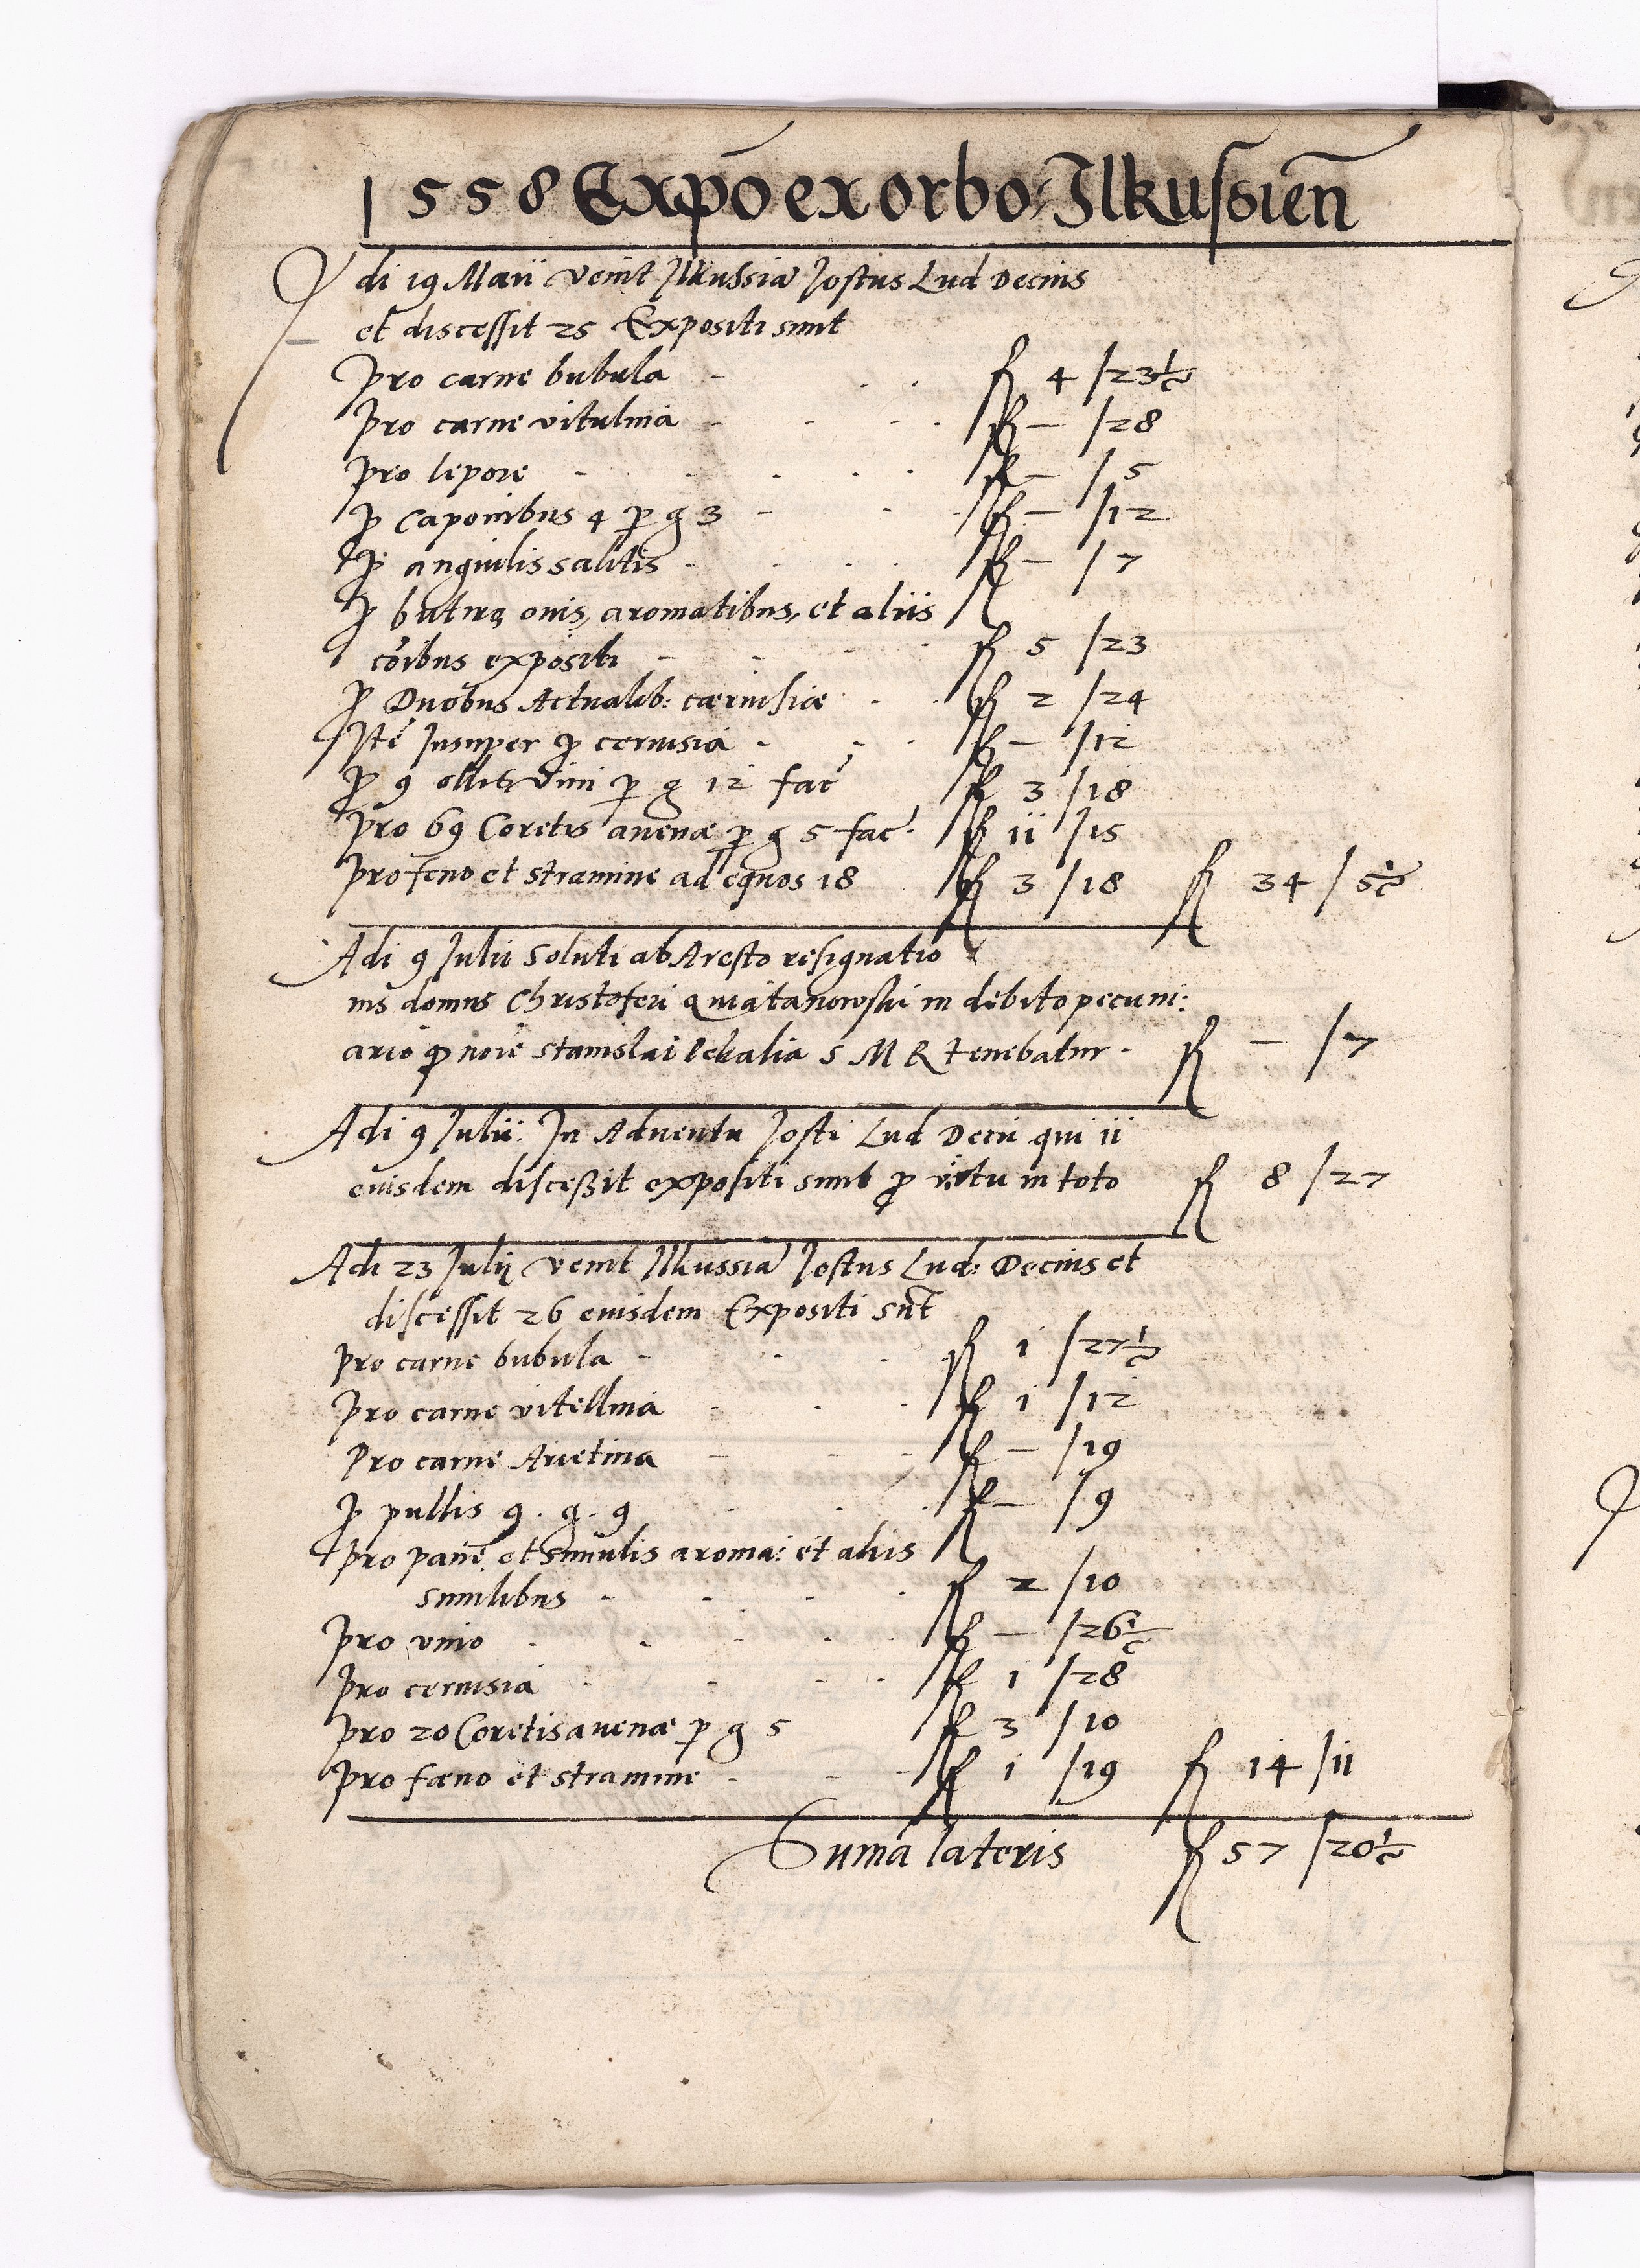 1558 Expō ex orbo: Ilkussień
Adi 19 Maii venit Ilkussiā Jostus Lud Decius
et discessit 25 Expositi sunt
Pro carne bubula - fl 4 /23½
Pro carne vitulina - fl — /28
Pro lepore - fl — /5
ꝓ Caponibus 4 p g 3 - fl — /12
ꝓ anguilis salitis - fl — /7
ꝓ butiro, ovis, aromatibus, et aliis
cōībus expositi - fl 5 /23
ꝓ Duobus Actualib: cærvisiæ fl 2 /24
Itē Insuper ꝓ cervisia - fl — /12
ꝓ 9 vini p g 12 fac fl 3 /18
Pro 69 Coretis avenæ p g 5 fac fl ii /15
Pro feno et stramine ad equos 18 fl 3 /18 fl 34 / 5½
Adi 9 Julii soluti ab Aresto resignatio
nis domus Christoferi Quiatanowski in debito pecuni:
ario ꝙ noīe Stanislai S M R tenebatur - fl — /7
Adi 9 Julii: In Adventu Josti Lud Decii qui ii
eiusdem discessit expositi sunt ꝓ victu in toto fl 8 /27
Adi 23 Julij venit Ilkussiā Jostus Lud: Decius et
discessit 26 eiusdem Expositi sūt
Pro carne bubula - fl i /27½
Pro carne vitellina fl i /12
Pro carne Arietina - fl — /19
ꝓ pullis 9 . g . 9 fl — /9
Pro pane et similis aroma: et aliis
similibus - fl 2 /10
Pro vino fl — /26½
Pro cervisia fl i /28
Pro 20 Coretis avenæ p g 5 fl 3 /10
Pro fœno et stramine - fl i /19 fl 14 /ii
Sumā lateris fl 57 /20½